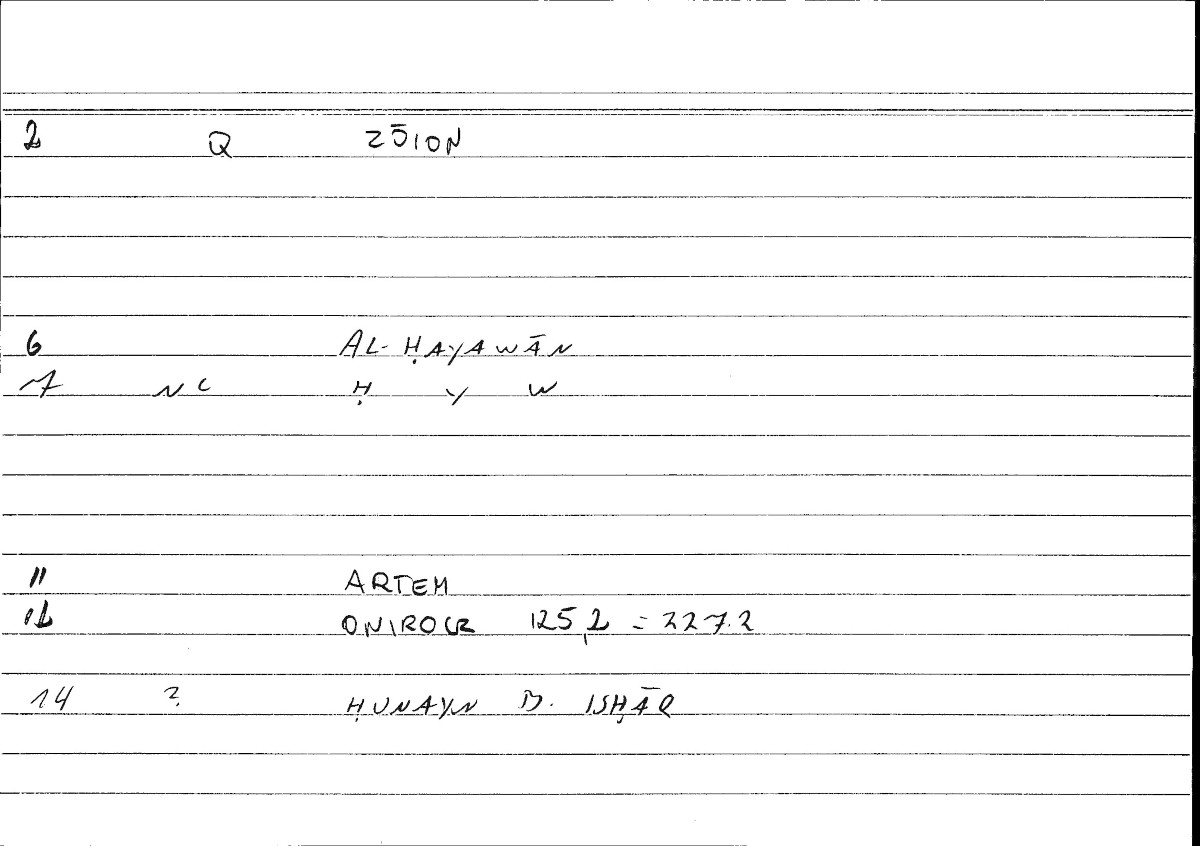 2 Q ZŌION
6 AL-ḤAYAWĀN
7 NC Ḥ Y W
11 ARTEM
12 ONIROCR 125,2 = 227.2
14 ? ḤUNAYN B. ISḤĀQ